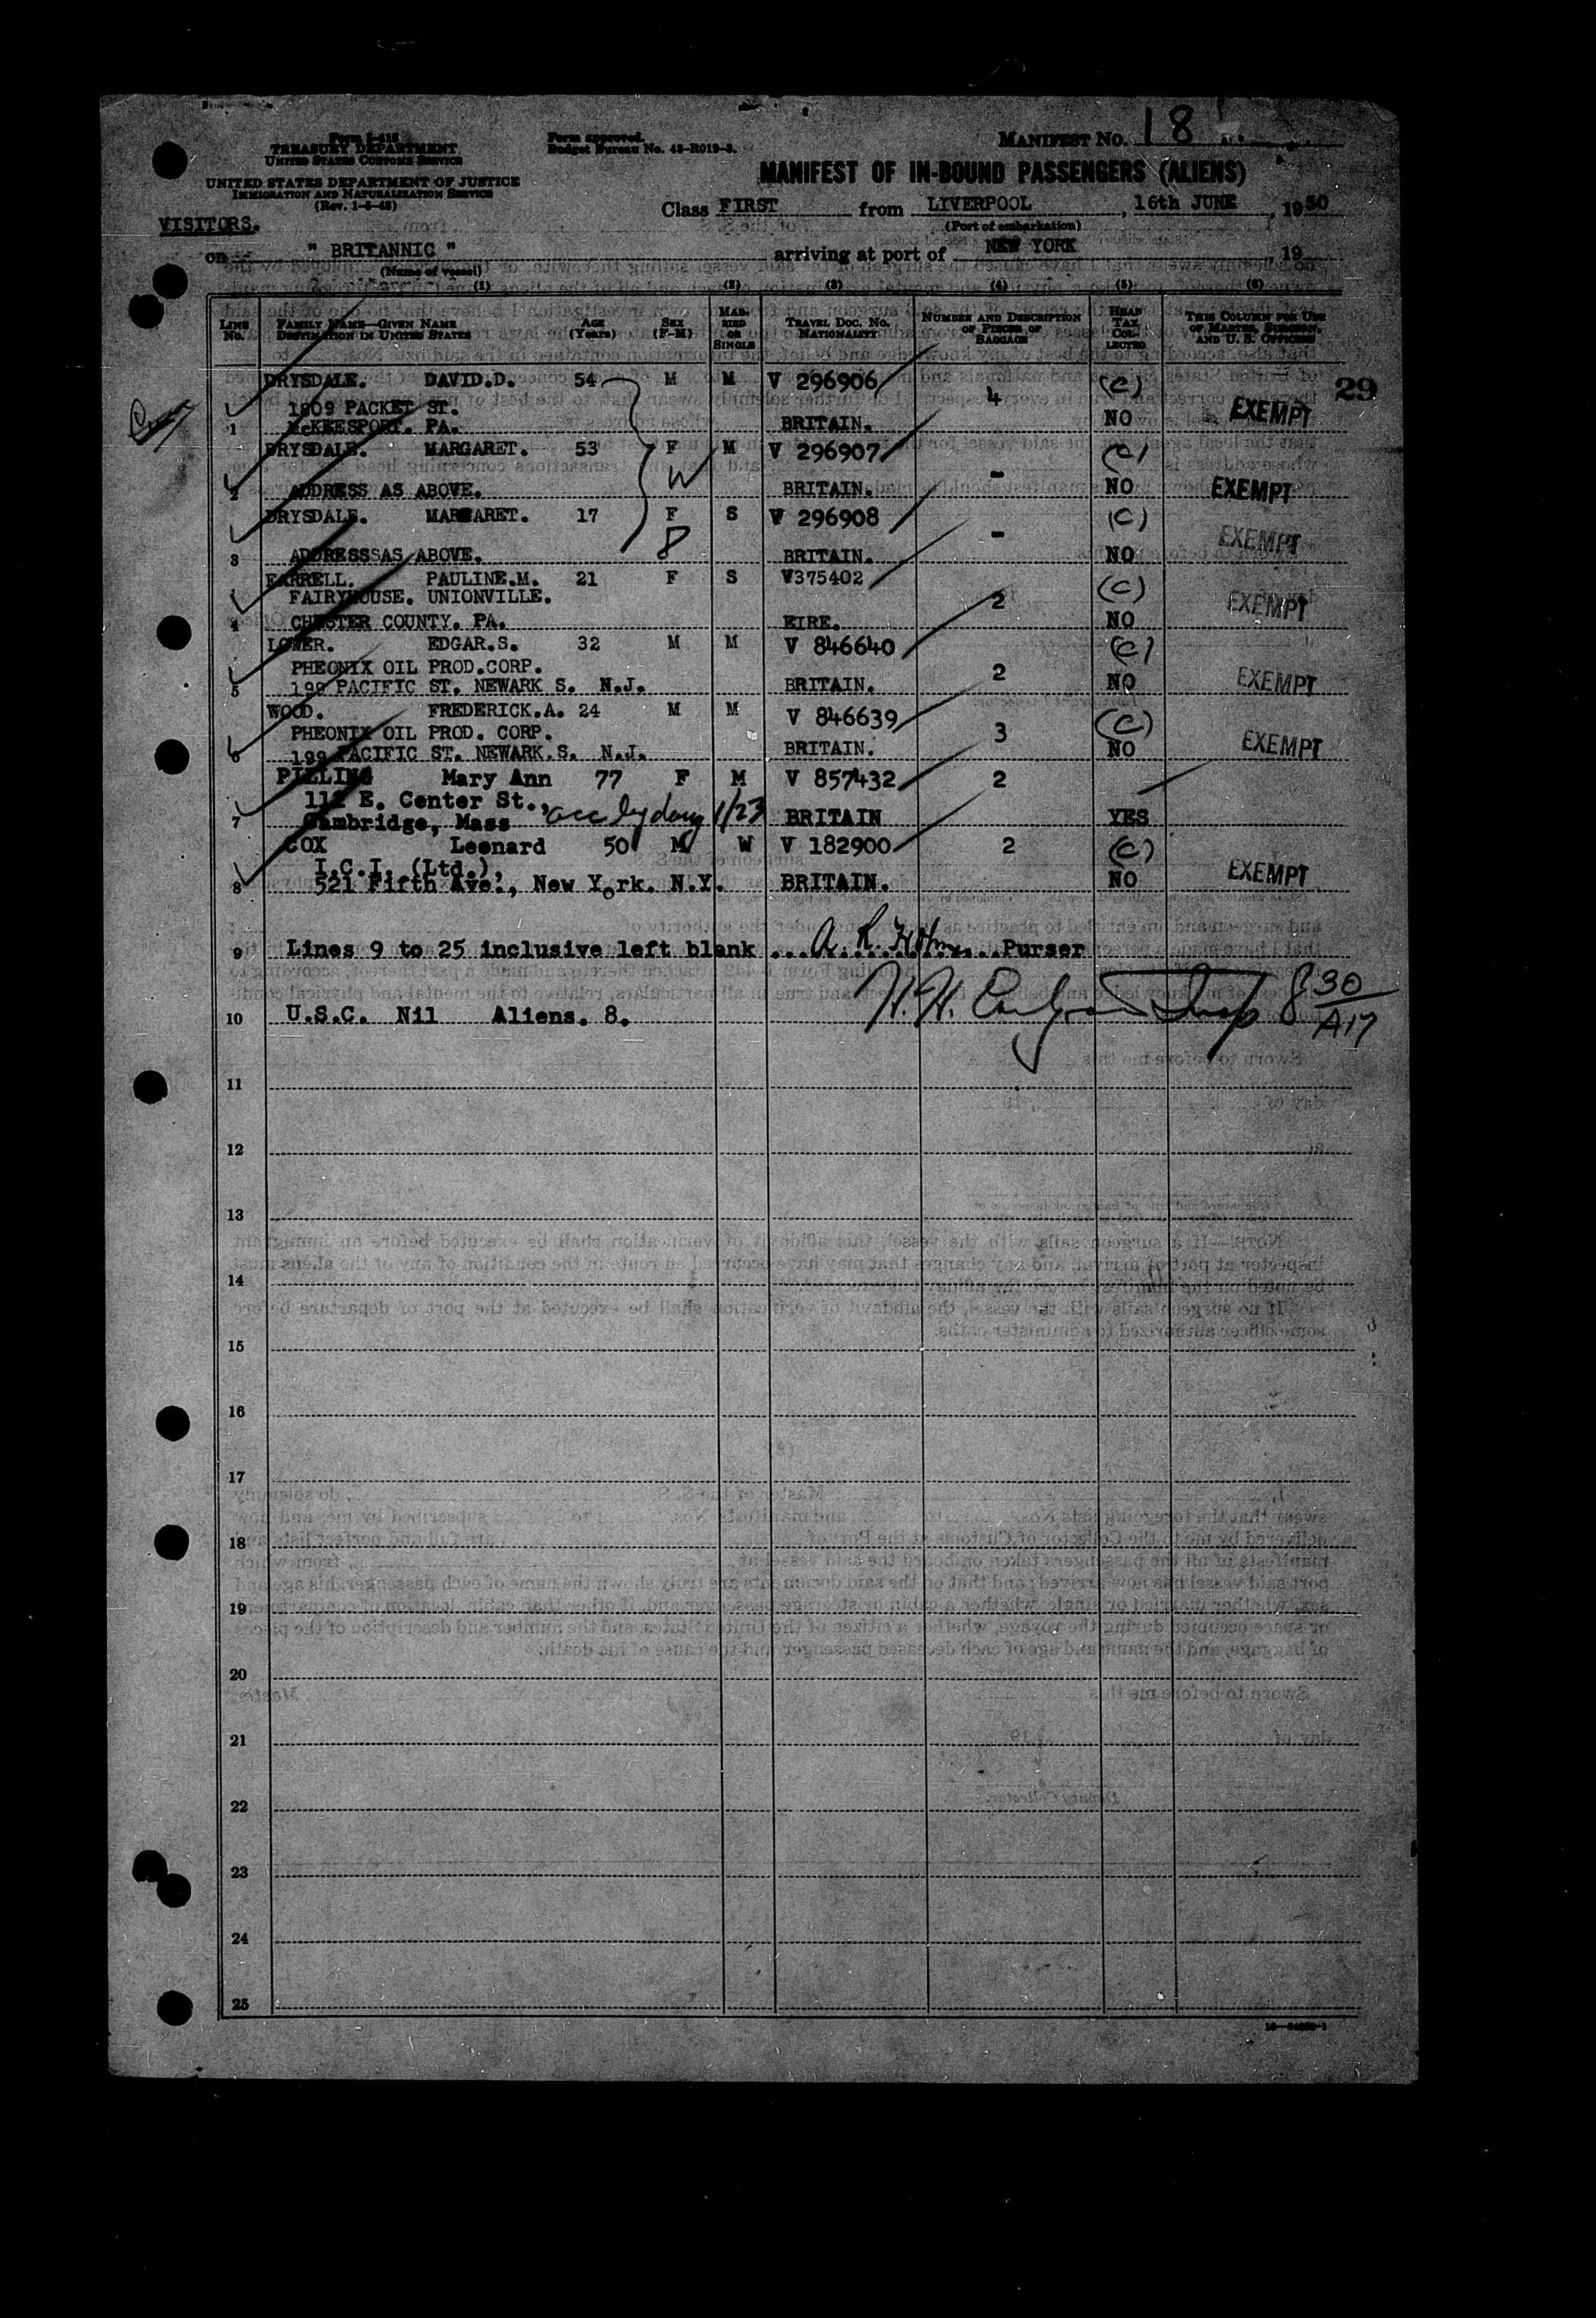 Form I-415
TREASURY DEPARTMENT
UNITED STATES CUSTOMS SERVICE
UNITED STATES DEPARTMENT OF JUSTICE
IMMIGRATION AND NATURALIZATION SERVICE
(Rev. 1-5-48)
Form approved.
Budget Bureau No. 43-R019-3.
MANIFEST NO. 18
MANIFEST OF IN-BOUND PASSENGERS (ALIENS)
Class FIRST from LIVERPOOL, 16th JUNE, 1950
(Port of embarkation)
VISITORS.
on " BRITANNIC " arriving at port of NEW YORK, 19
(Name of vessel)
(1) (2) (3) (4) (5) (6)
LINE No. FAMILY NAME—GIVEN NAME DESTINATION IN UNITED STATES AGE (Years) SEX (F-M) MARRIED OR SINGLE TRAVEL DOC. NO. NATIONALITY NUMBER AND DESCRIPTION OF PIECES OF BAGGAGE HEAD TAX COLLECTED THIS COLUMN FOR USE OF MASTER, SURGEON, AND U. S. OFFICERS
29
DRYSDALE. DAVID.D. 54 M M V 296906 4 (C)
1809 PACKET ST.
1 McKEESPORT. PA. BRITAIN. NO EXEMPT
DRYSDALE. MARGARET. 53 F M V 296907 - (C)
W
2 ADDRESS AS ABOVE. BRITAIN. NO EXEMPT
DRYSDALE. MARGARET. 17 F S V 296908 - (C)
8
3 ADDRESSSAS ABOVE. BRITAIN. NO EXEMPT
FARRELL. PAULINE.M. 21 F S V375402 2 (C)
FAIRYHOUSE. UNIONVILLE.
4 CHESTER COUNTY. PA. EIRE. NO EXEMPT
LOWER. EDGAR.S. 32 M M V 846640 2 (C)
PHEONIX OIL PROD.CORP.
5 199 PACIFIC ST. NEWARK S. N.J. BRITAIN. NO EXEMPT
WOOD. FREDERICK.A. 24 M M V 846639 3 (C)
PHEONIX OIL PROD. CORP.
6 199 PACIFIC ST. NEWARK.S. N.J. BRITAIN. NO EXEMPT
PILLING Mary Ann 77 F M V 857432 2
112 E. Center St.,
7 Cambridge, Mass 1/23 BRITAIN YES
COX Leonard 50 M W V 182900 2 (C)
I.C.I. (Ltd.),
8 521 Fifth Ave., New York. N.Y. BRITAIN. NO EXEMPT
9 Lines 9 to 25 inclusive left blank ... A. R. ... Purser
10 U.S.C. Nil Aliens. 8. H. H. Insp 8 30/A17
11
12
13
14
15
16
17
18
19
20
21
22
23
24
25